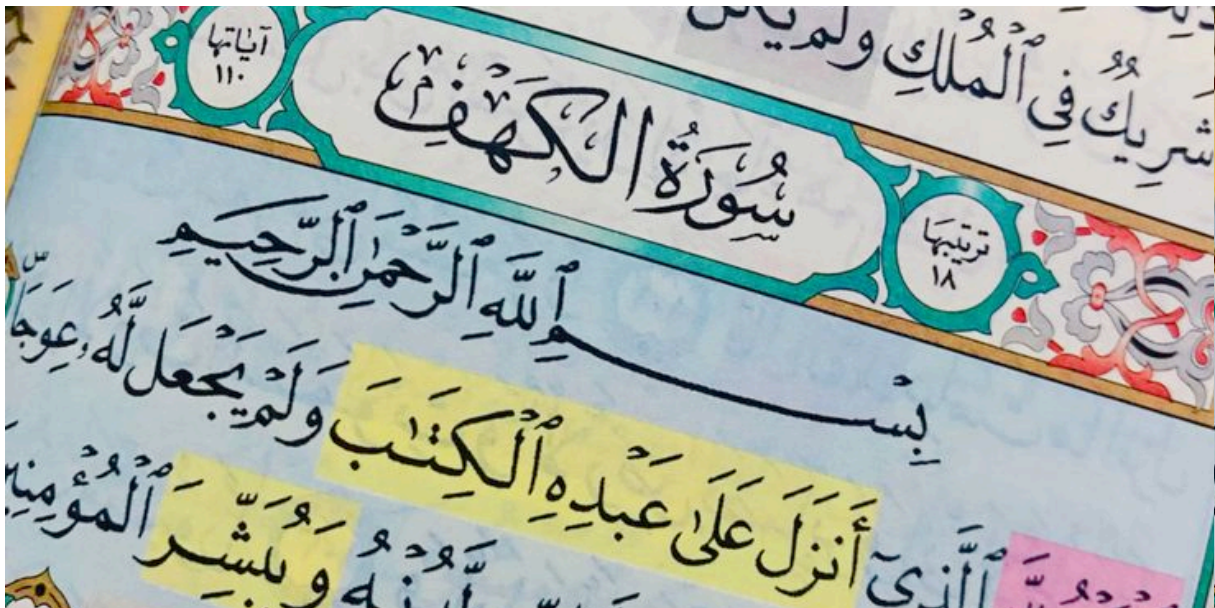 شَرِيكٌ فِى ٱلْمُلْكِ وَلَمْ يَكُن
ترتيبها
١٨
سُورَةُ الكَهْفِ
آياتها
١١٠
بِسْمِ ٱللَّهِ ٱلرَّحْمَٰنِ ٱلرَّحِيمِ
ٱلَّذِىٓ أَنزَلَ عَلَىٰ عَبْدِهِ ٱلْكِتَٰبَ وَلَمْ يَجْعَل لَّهُۥ عِوَجَاۜ
لَّدُنْهُ وَيُبَشِّرَ ٱلْمُؤْمِنِينَ